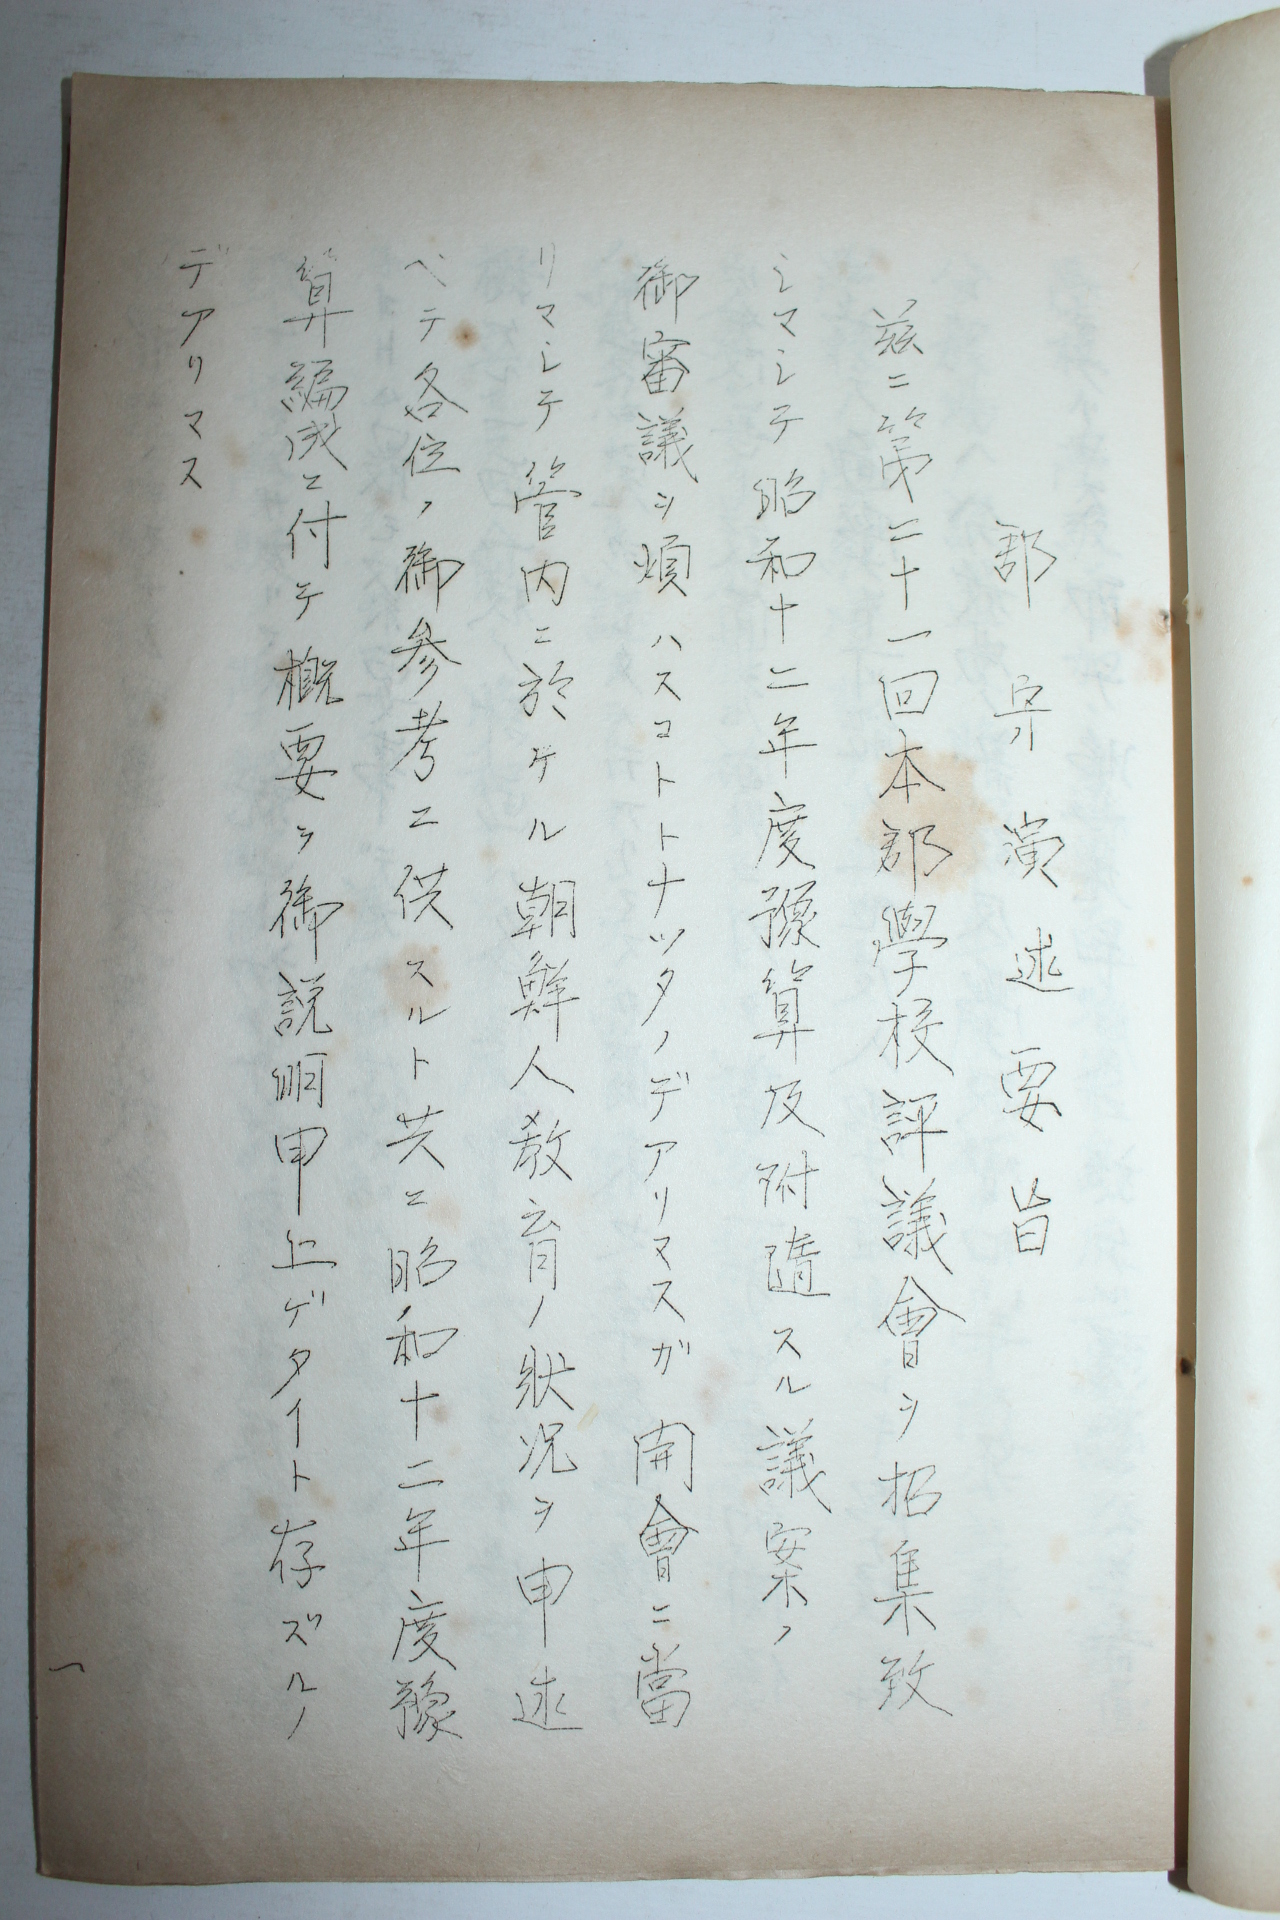 郡守演述要旨
玆ニ第二十一回本郡學校評議會ヲ招集致
シマシテ昭和十二年度豫算及附隨スル議案ノ
御審議ヲ煩ハスコトトナツタノデアリマスガ開會ニ當
リマシテ管内ニ於ケル朝鮮人敎育ノ狀況ヲ申述
ベテ各位ノ御參考ニ供スルト共ニ昭和十二年度豫
算編成ニ付テ概要ヲ御説明申上ゲタイト存ズルノ
デアリマス
一